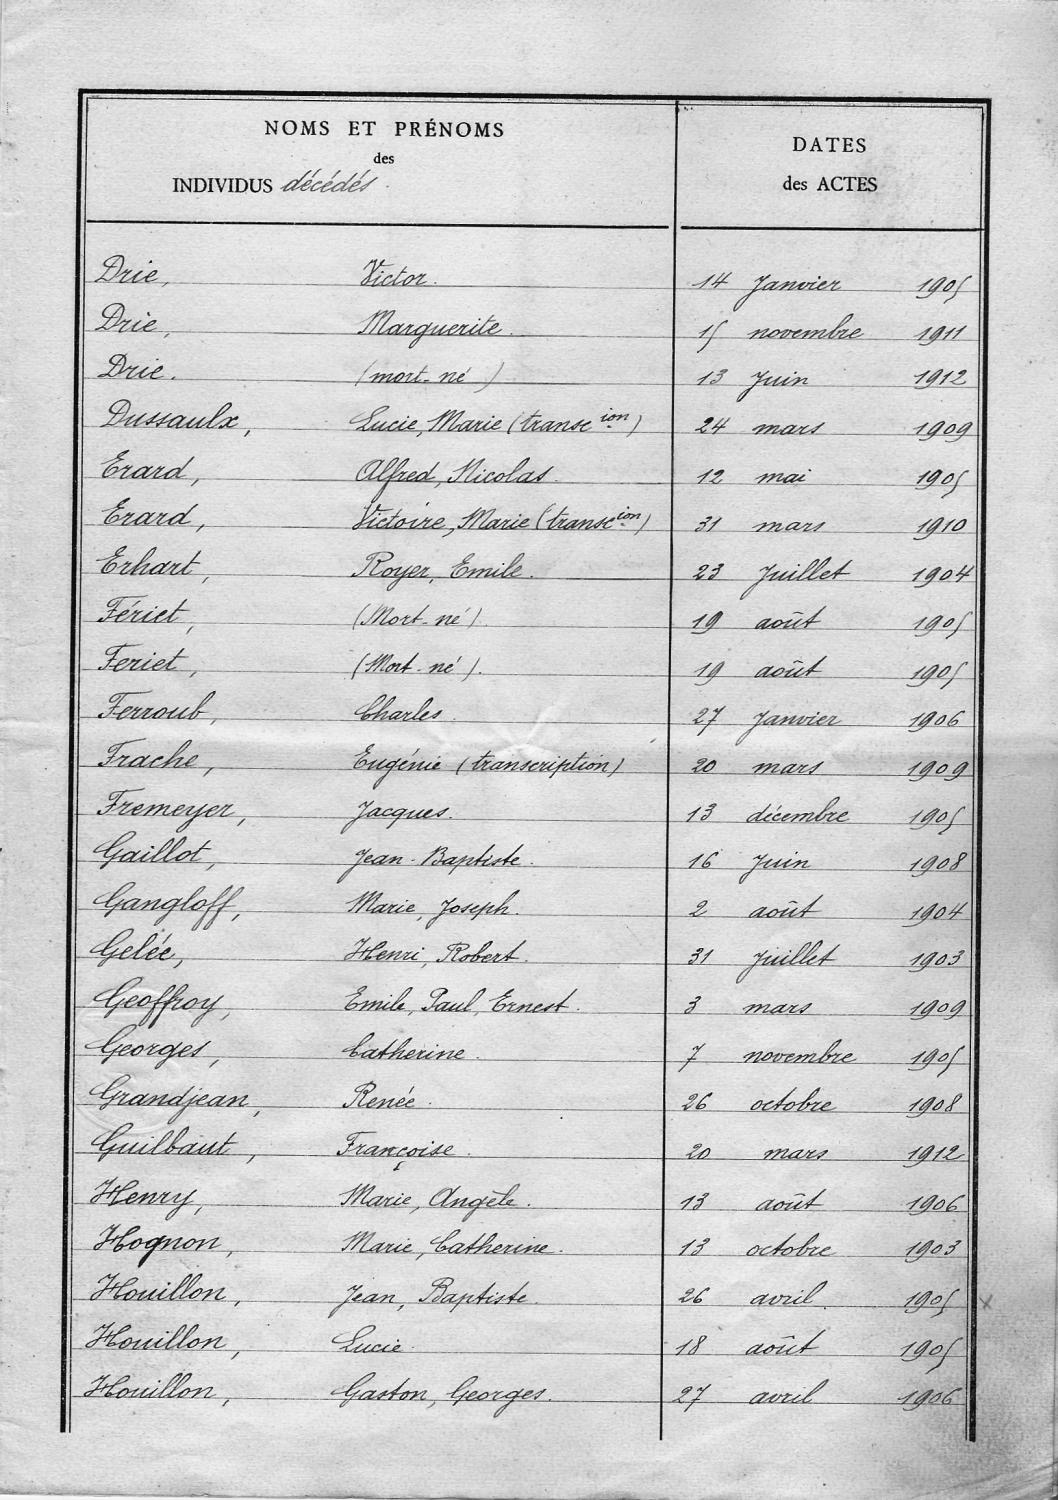 NOMS ET PRÉNOMS
des
INDIVIDUS décédés.
DATES
des ACTES
Drie, Victor. 14 Janvier 1905
Drie, Marguerite. 15 novembre 1911
Drie. (mort-né) 13 Juin 1912
Dussaulx, Lucie, Marie (transcion) 24 mars 1909
Erard, Alfred, Nicolas. 12 mai 1905
Erard, Victoire, Marie (transcion) 31 mars 1910
Erhart, Royer, Emile. 23 Juillet 1904
Fériet, (Mort-né). 19 août 1905
Feriet, (Mort-né). 19 août 1905
Ferroub, Charles. 27 Janvier 1906
Frache, Eugénie (transcription) 20 mars 1909
Fremeyer, Jacques. 13 décembre 1905
Gaillot, Jean-Baptiste. 16 Juin 1908
Gangloff, Marie, Joseph. 2 août 1904
Gelée, Henri, Robert. 31 Juillet 1903
Geoffroy, Emile, Paul, Ernest. 3 mars 1909
Georges, Catherine. 7 novembre 1905
Grandjean, Renée. 26 octobre 1908
Guilbaut, Françoise. 20 mars 1912
Henry, Marie, Angèle. 13 août 1906
Hognon, Marie, Catherine. 13 octobre 1903
Houillon, Jean, Baptiste. 26 avril. 1905 x
Houillon, Lucie. 18 août 1905
Houillon, Gaston, Georges. 27 avril 1906